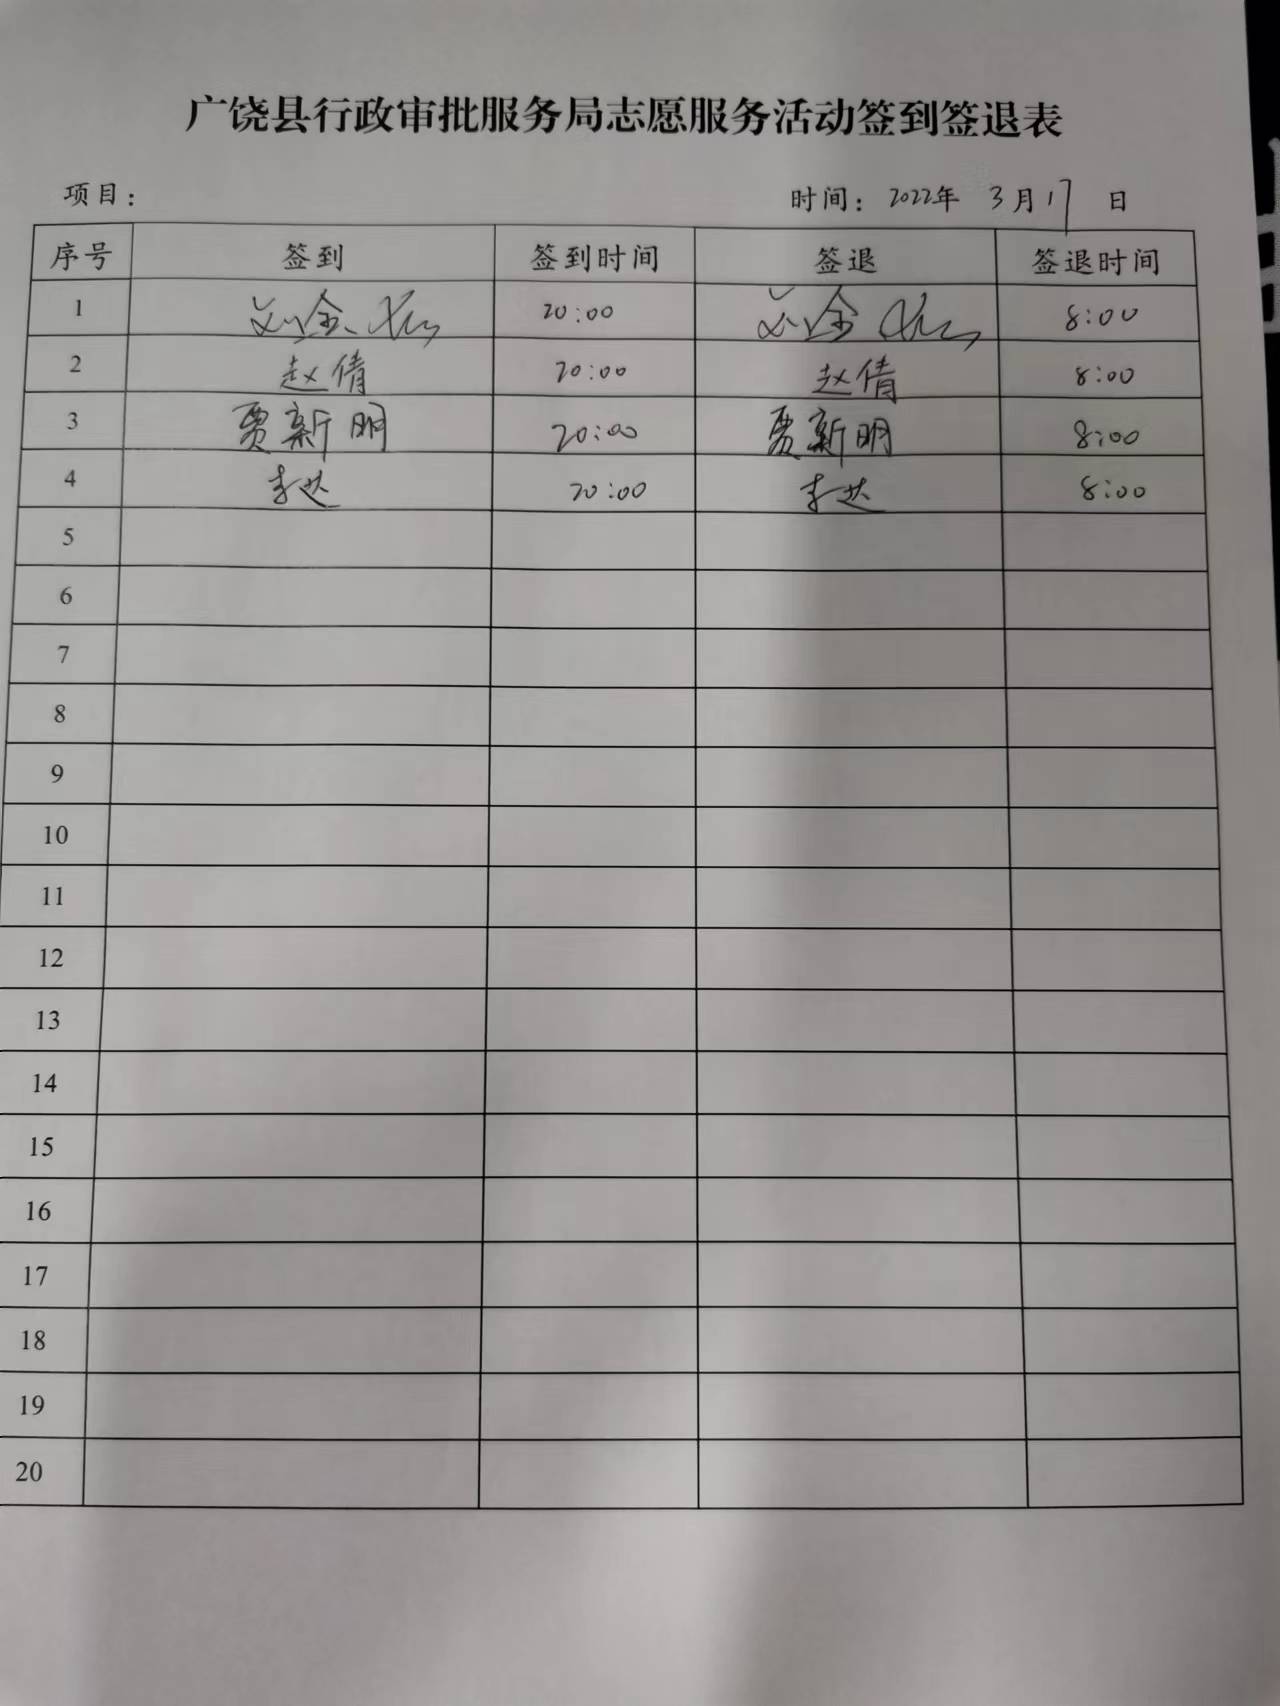 广饶县行政审批服务局志愿服务活动签到签退表
项目： 时间：2022年 3月17 日
序号 签到 签到时间 签退 签退时间
1 20:00 8:00
2 赵倩 20:00 赵倩 8:00
3 贾新明 20:00 贾新明 8:00
4 李达 20:00 李达 8:00
5
6
7
8
9
10
11
12
13
14
15
16
17
18
19
20